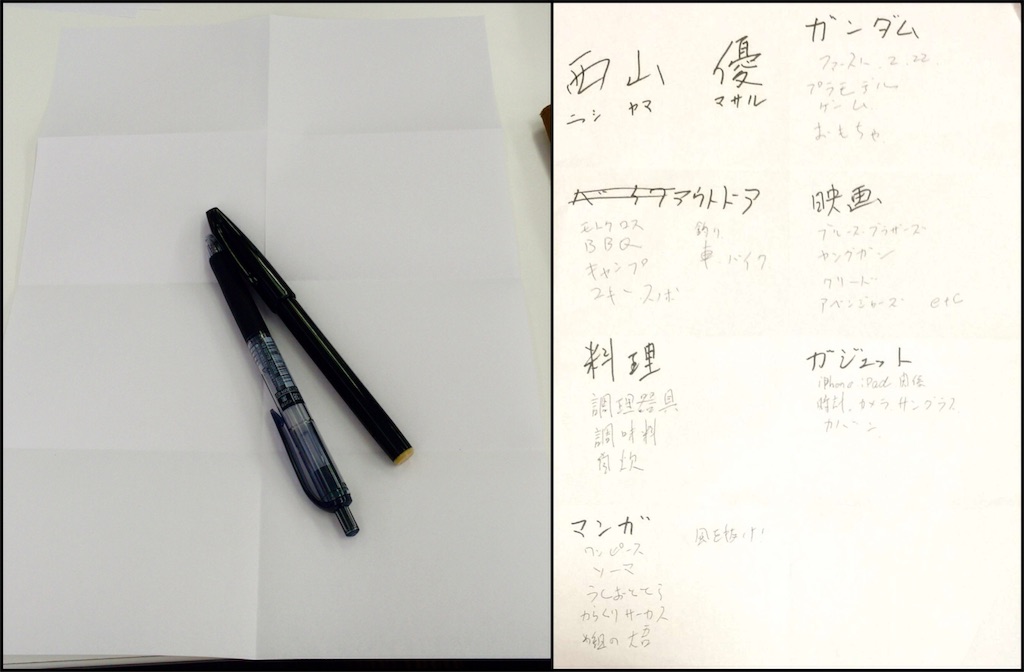 西山 優
ニシ ヤマ マサル
ガンダム
プラモデル
ゲーム
おもちゃ
アウトドア
モトクロス
BBQ
キャンプ
釣り
車・バイク
映画
ブルース・ブラザーズ
ヤングガン
クリード
アベンジャーズ etc
料理
調理器具
調味料
ガジェット
iPhone iPad 関係
時計、カメラ サングラス
カバン
マンガ
ワンピース
ソーマ
うしおととら
からくりサーカス
め組の大吾